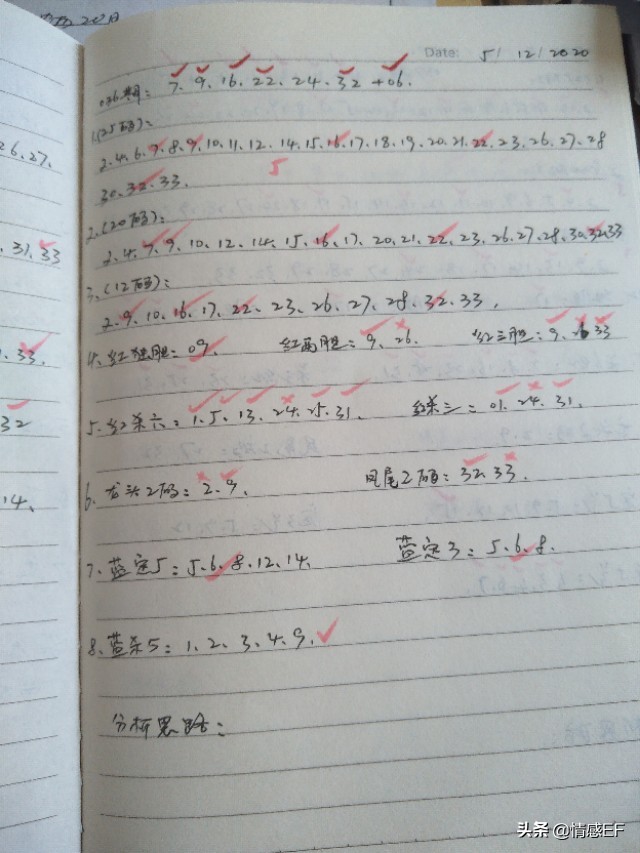 Date: 5 / 12 / 2020
036期: 7、9、16、22、24、32 +06.
1.(25码):
2.4.6.7.8.9.10.11.12.14.15.16.17.18.19.20.21.22.23.26.27.28
30.32.33.
5
2.(20码):
2.4.7.9.10.12.14.15.16.17.20.21.22.23.26.27.28.30.32.33
3.(12码):
2.9.10.16.17.22.23.26.27.28.32.33.
4.红独胆: 09. 红两胆: 9.26. 红三胆: 9.26 33
5.红杀六: 1.5.13.24.25.31. 红杀三: 01.24.31.
6.龙头2码: 2.9. 凤尾2码: 32 33.
7.蓝定5: 5.6.8.12.14. 蓝定3: 5.6.8.
8.蓝杀5: 1、2、3、4.9.
分析思路:
26.27.
31.33
33.
32
14、
头条 @情感EF